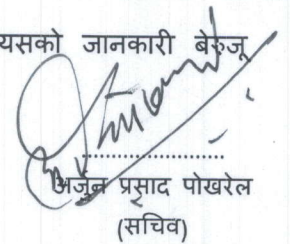 यसको जानकारी बेरुजू
अर्जुन प्रसाद पोखरेल
(सचिव)